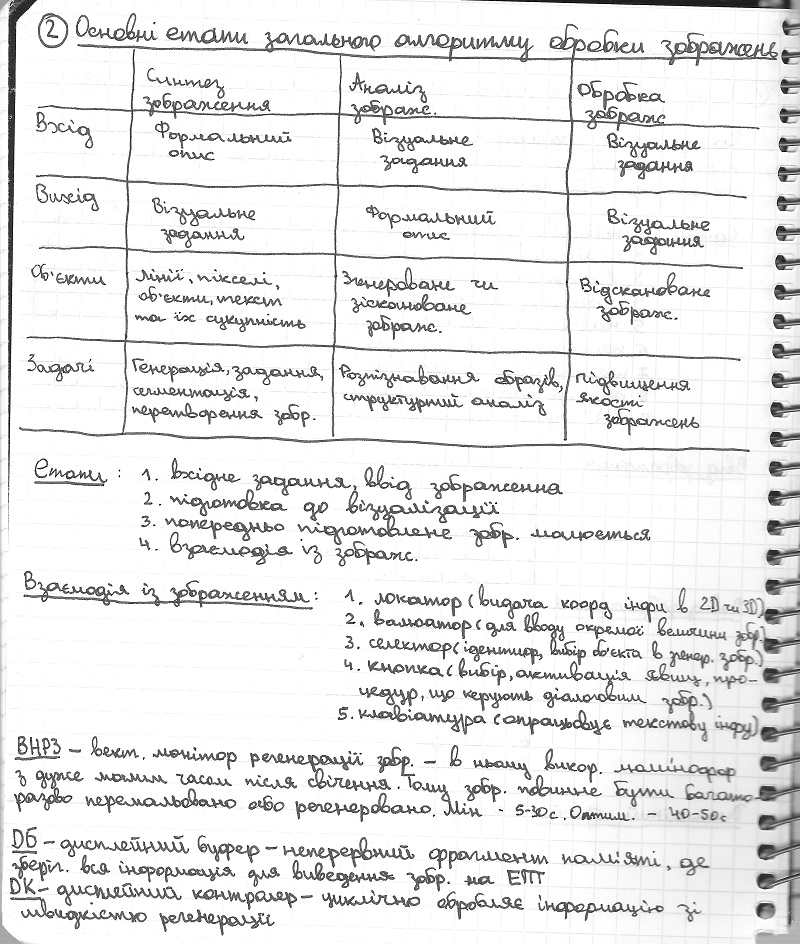 ② Основні етапи загального алгоритму обробки зображень
Синтез зображення
Аналіз зображ.
Обробка зображ
Вхід
Формальний опис
Візуальне задання
Візуальне задання
Вихід
Візуальне задання
Формальний опис
Візуальне задання
Об'єкти
лінії, пікселі,
об'єкти, текст
та їх сукупність
Згенероване чи
зіскановане
зображ.
Відскановане
зображ.
Задачі
Генерація, задання,
сегментація,
перетворення зобр.
Розпізнавання образів,
структурний аналіз
підвищення
якості
зображень
Етапи: 1. вхідне задання, ввід зображення
2. підготовка до візуалізації
3. попередньо підготовлене зобр. малюється
4. взаємодія із зображ.
Взаємодія із зображенням: 1. локатор (видача коорд інфи в 2D чи 3D)
2. валюатор (для вводу окремої величини зобр.)
3. селектор (ідентиф, вибір об'єкта в згенер. зобр.)
4. кнопка (вибір, активація явищ, про-
цедур, що керують діалоговим зобр.)
5. клавіатура (опрацьовує текстову інфу)
ВНРЗ – вект. монітор регенерації зобр. – в ньому викор. люмінофор
з дуже малим часом після свічення. Тому зобр. повинне бути багато-
разово перемальовано або регенеровано. Мін - 5-30с. Оптим. – 40-50с
DБ – дисплейний буфер – неперервний фрагмент пам'яті, де
зберіг. вся інформація для виведення зобр. на ЕПТ
DK – дисплейний контролер – циклічно обробляє інформацію зі
швидкістю регенерації